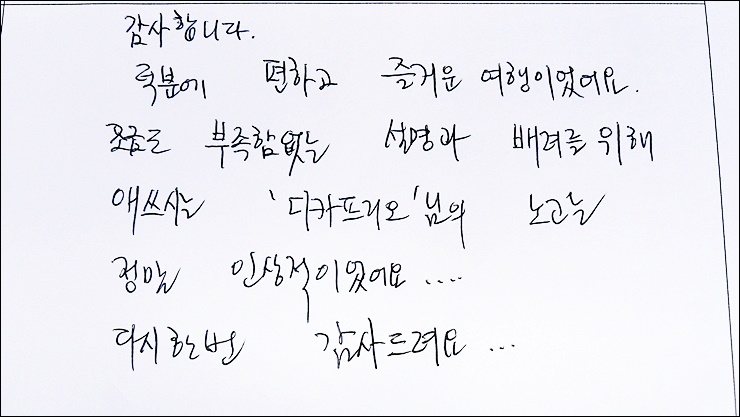 감사합니다.
덕분에 편하고 즐거운 여행이었어요.
조금도 부족함없는 설명과 배려를 위해
애쓰시는 '디카프리오'님의 노고는
정말 인상적이었어요 ....
다시한번 감사드려요 ...